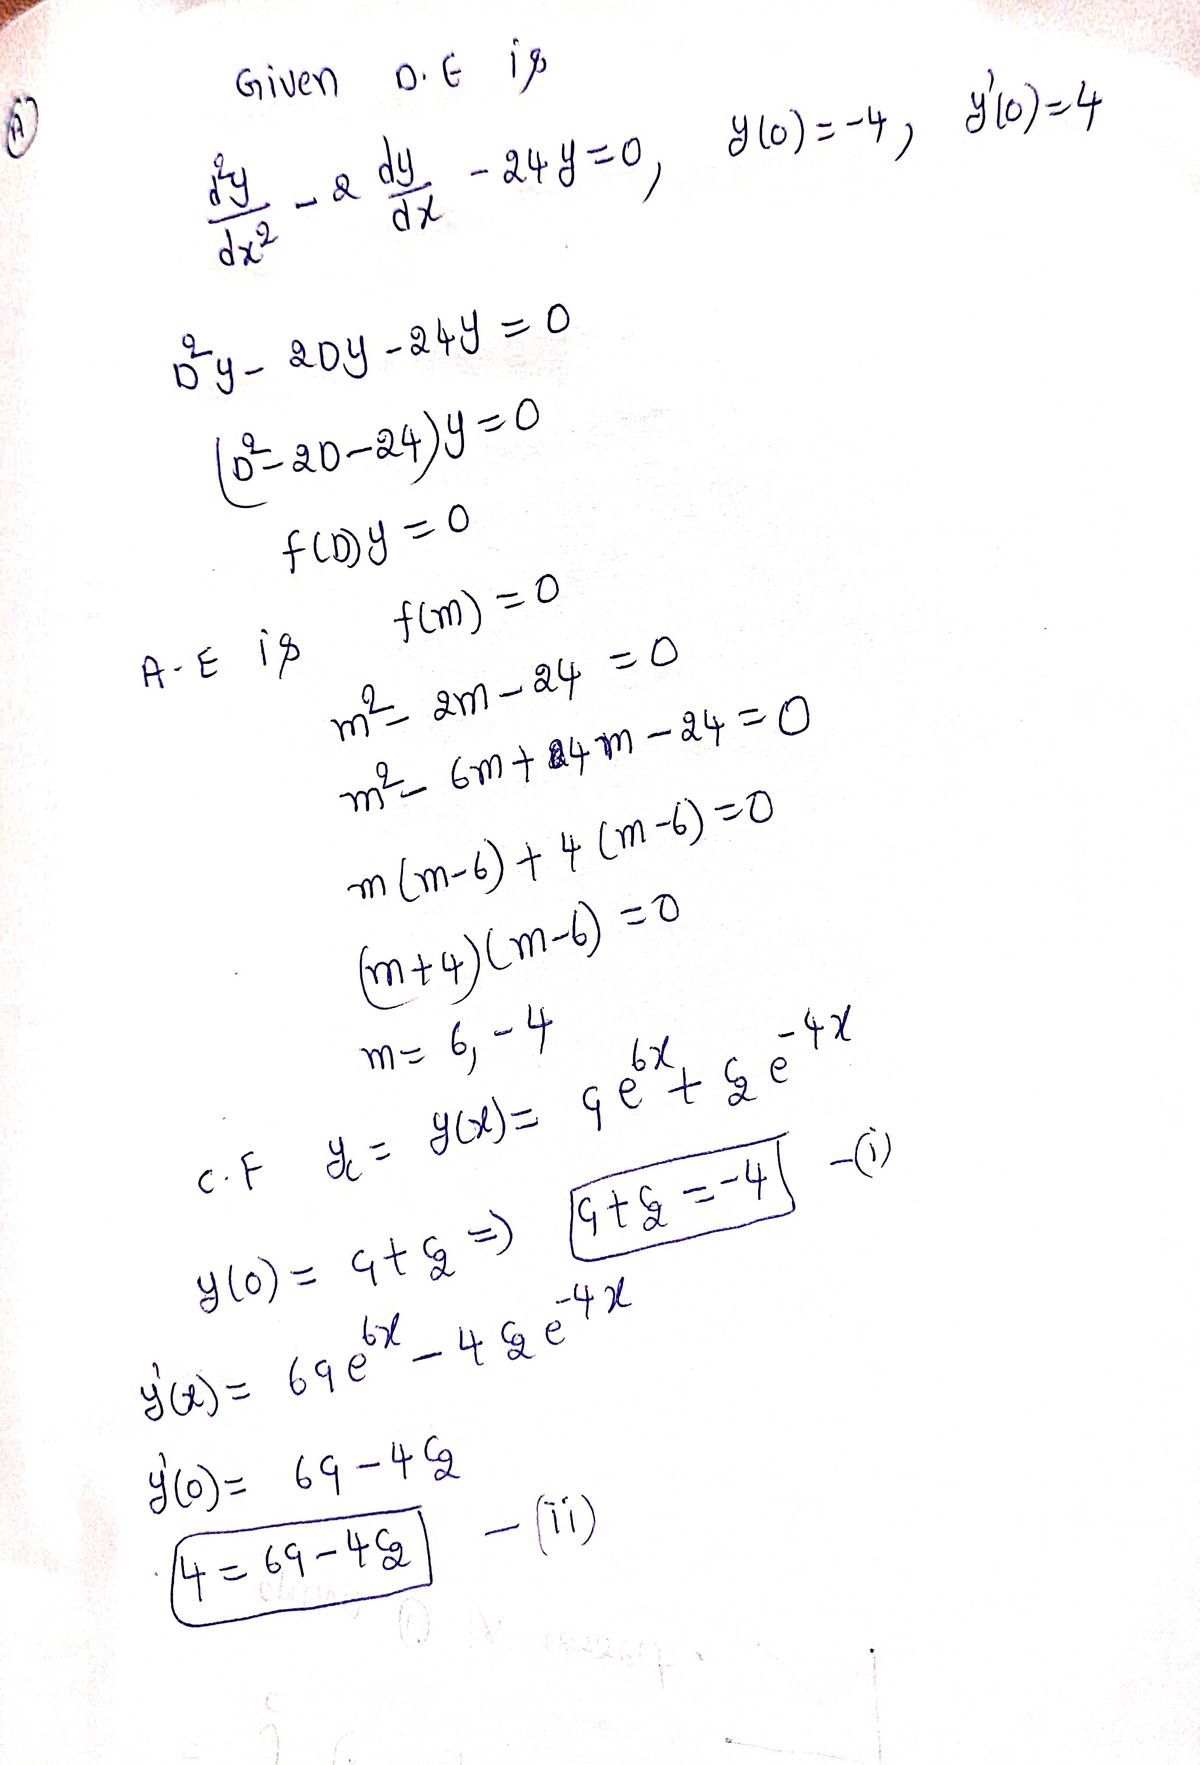 A
Given D.E is
d²y/dx² - 2 dy/dx - 24y = 0, y(0) = -4, y'(0) = 4
D²y - 2Dy - 24y = 0
(D² - 2D - 24)y = 0
f(D)y = 0
A-E is f(m) = 0
m² - 2m - 24 = 0
m² - 6m + 4m - 24 = 0
m(m-6) + 4(m-6) = 0
(m+4)(m-6) = 0
m = 6, -4
C.F y_c = y(x) = c₁e^{6x} + c₂e^{-4x}
y(0) = c₁ + c₂ => c₁ + c₂ = -4 -(i)
y'(x) = 6c₁e^{6x} - 4c₂e^{-4x}
y'(0) = 6c₁ - 4c₂
4 = 6c₁ - 4c₂ -(ii)